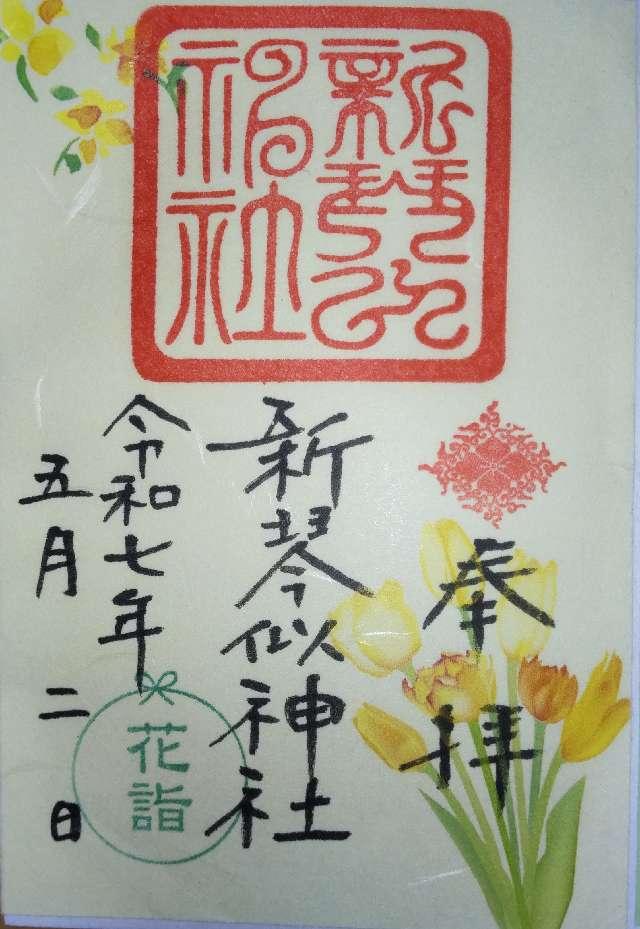 新琴似
神社
奉拝
新琴似神社
令和七年
五月二日
花詣